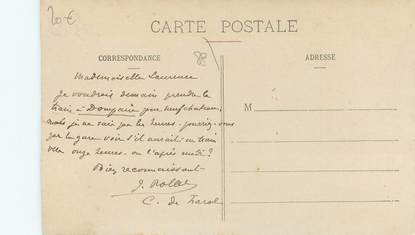 20 €
CARTE POSTALE
CORRESPONDANCE
ADRESSE
Mademoiselle Laurence
je voudrais demain prendre le
train à Dompaire pour neufchateau,
mais je ne sais pas les heures - pourriez-vous
par la gare voir s'il y aurait un train
vers onze heures - ou l'après midi?
Bien reconnaissant
J. Rollet
C. de
M